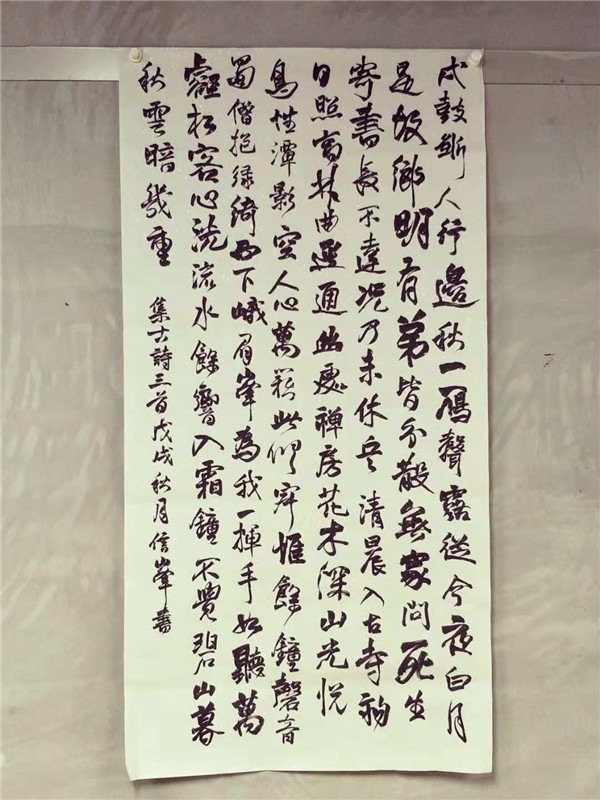 戍鼓斷人行邊秋一鴈聲露從今夜白月
是故鄉明有弟皆分散無家問死生
寄書長不達況乃未休兵 清晨入古寺初
日照高林曲逕通幽處禪房花木深山光悅
鳥性潭影空人心萬籟此俱寂惟餘鐘磬音
蜀僧抱綠綺西下峨眉峯為我一揮手如聽萬
壑松客心洗流水餘響入霜鐘不覺碧山暮
秋雲暗幾重 集古詩三首戊戌秋月信峯書